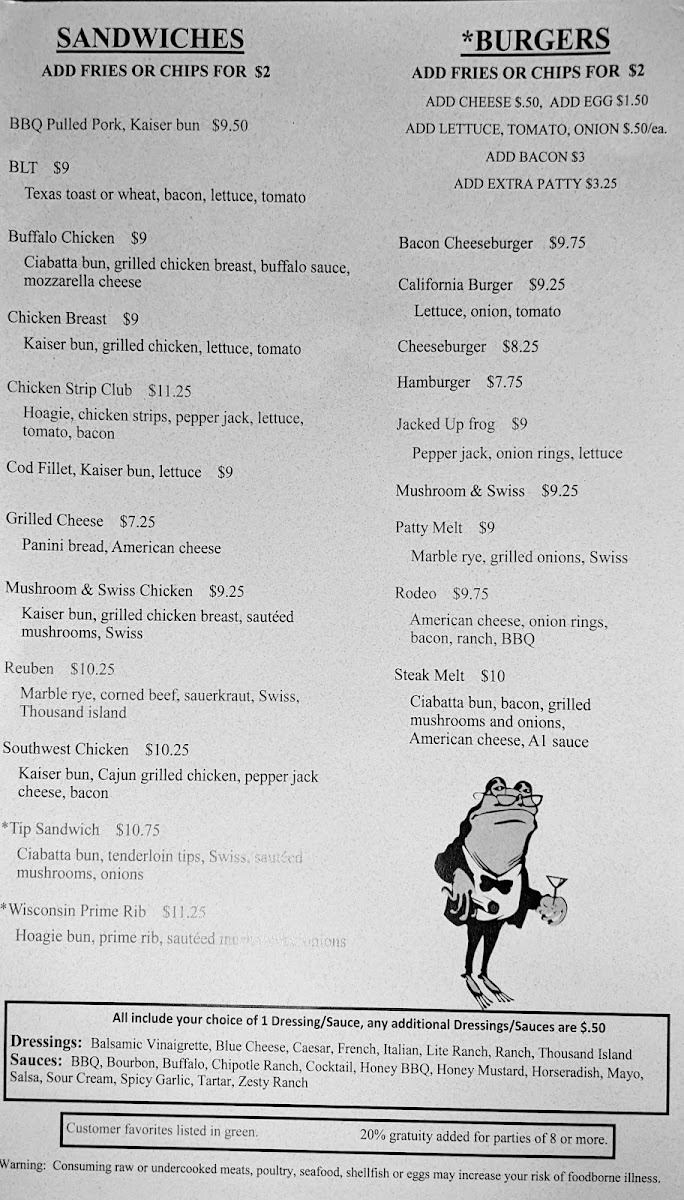 SANDWICHES
ADD FRIES OR CHIPS FOR $2
BBQ Pulled Pork, Kaiser bun $9.50
BLT $9
Texas toast or wheat, bacon, lettuce, tomato
Buffalo Chicken $9
Ciabatta bun, grilled chicken breast, buffalo sauce,
mozzarella cheese
Chicken Breast $9
Kaiser bun, grilled chicken, lettuce, tomato
Chicken Strip Club $11.25
Hoagie, chicken strips, pepper jack, lettuce,
tomato, bacon
Cod Fillet, Kaiser bun, lettuce $9
Grilled Cheese $7.25
Panini bread, American cheese
Mushroom & Swiss Chicken $9.25
Kaiser bun, grilled chicken breast, sautéed
mushrooms, Swiss
Reuben $10.25
Marble rye, corned beef, sauerkraut, Swiss,
Thousand island
Southwest Chicken $10.25
Kaiser bun, Cajun grilled chicken, pepper jack
cheese, bacon
*Tip Sandwich $10.75
Ciabatta bun, tenderloin tips, Swiss, sautéed
mushrooms, onions
*Wisconsin Prime Rib $11.25
Hoagie bun, prime rib, sautéed onions
*BURGERS
ADD FRIES OR CHIPS FOR $2
ADD CHEESE $.50, ADD EGG $1.50
ADD LETTUCE, TOMATO, ONION $.50/ea.
ADD BACON $3
ADD EXTRA PATTY $3.25
Bacon Cheeseburger $9.75
California Burger $9.25
Lettuce, onion, tomato
Cheeseburger $8.25
Hamburger $7.75
Jacked Up frog $9
Pepper jack, onion rings, lettuce
Mushroom & Swiss $9.25
Patty Melt $9
Marble rye, grilled onions, Swiss
Rodeo $9.75
American cheese, onion rings,
bacon, ranch, BBQ
Steak Melt $10
Ciabatta bun, bacon, grilled
mushrooms and onions,
American cheese, A1 sauce
All include your choice of 1 Dressing/Sauce, any additional Dressings/Sauces are $.50
Dressings: Balsamic Vinaigrette, Blue Cheese, Caesar, French, Italian, Lite Ranch, Ranch, Thousand Island
Sauces: BBQ, Bourbon, Buffalo, Chipotle Ranch, Cocktail, Honey BBQ, Honey Mustard, Horseradish, Mayo,
Salsa, Sour Cream, Spicy Garlic, Tartar, Zesty Ranch
Customer favorites listed in green.
20% gratuity added for parties of 8 or more.
Warning: Consuming raw or undercooked meats, poultry, seafood, shellfish or eggs may increase your risk of foodborne illness.